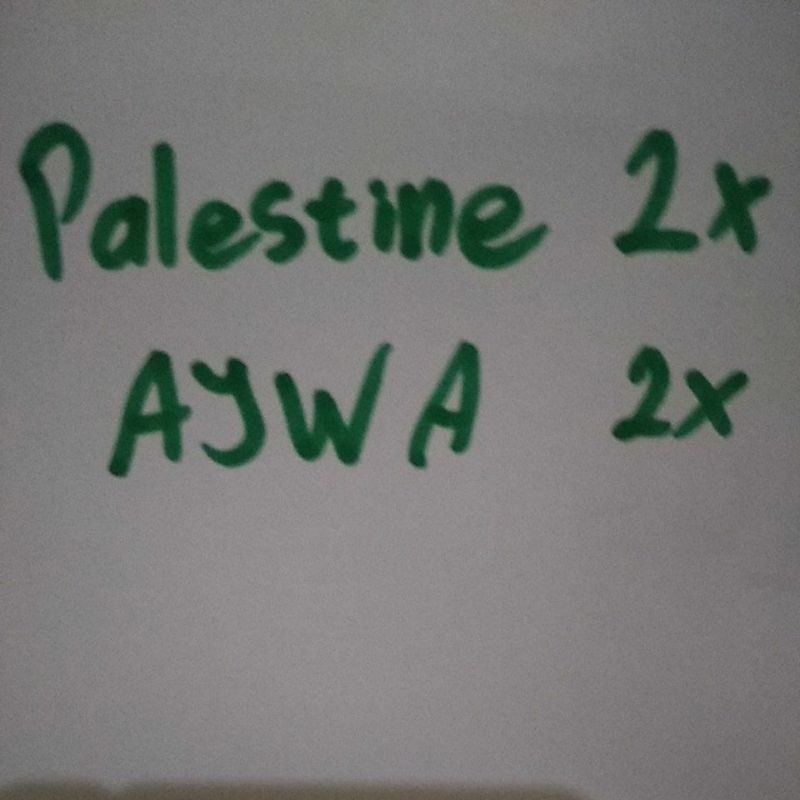 Palestine 2x
AYWA 2x